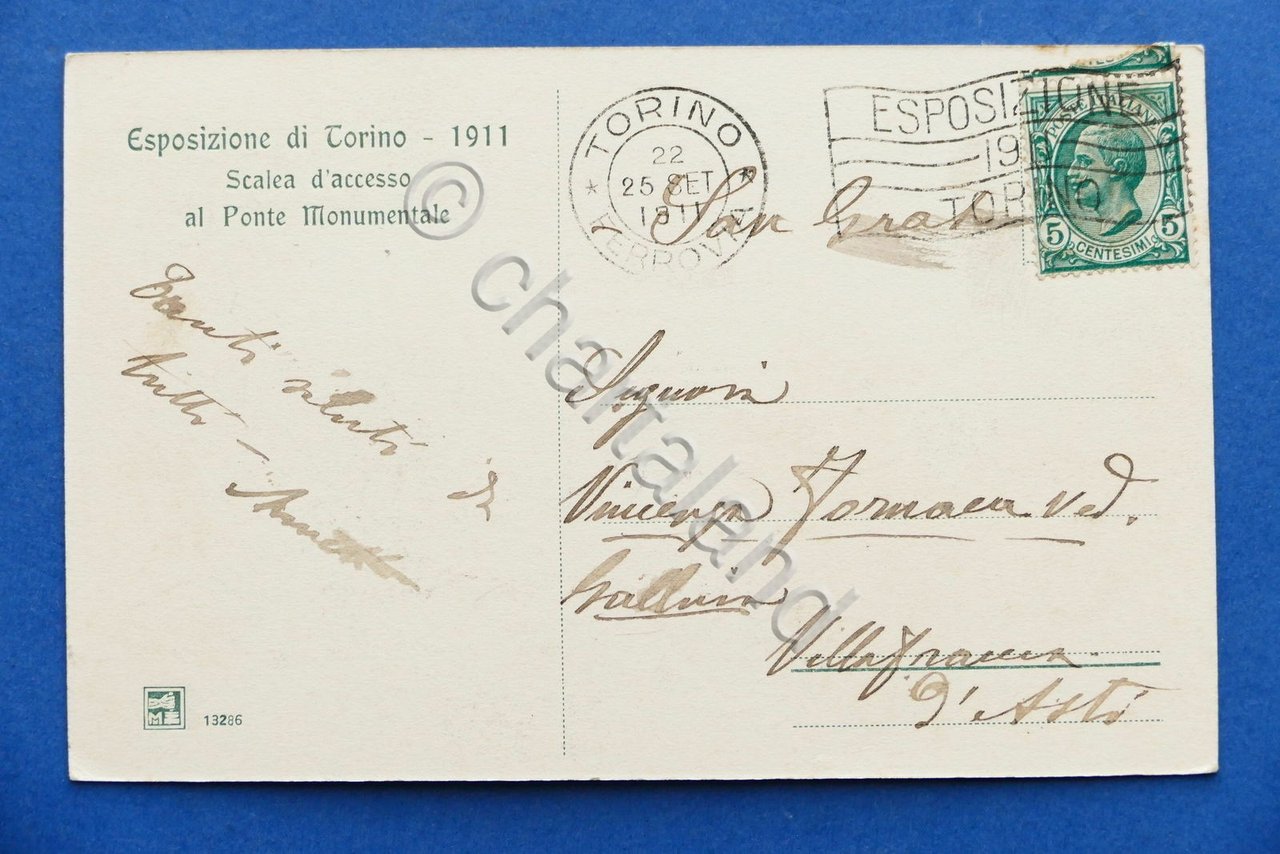 Esposizione di Torino - 1911
Scalea d'accesso
al Ponte Monumentale
TORINO
22
25 SET
1911
FERROVIA
ESPOSIZIONE
19
TORINO
POSTE ITALIANE
5 CENTESIMI 5
San Grato
Tanti saluti a
tutti -
Signora
Vincenza Fornaca Ved.
Villafranca
d'Asti
13286
© chartaland